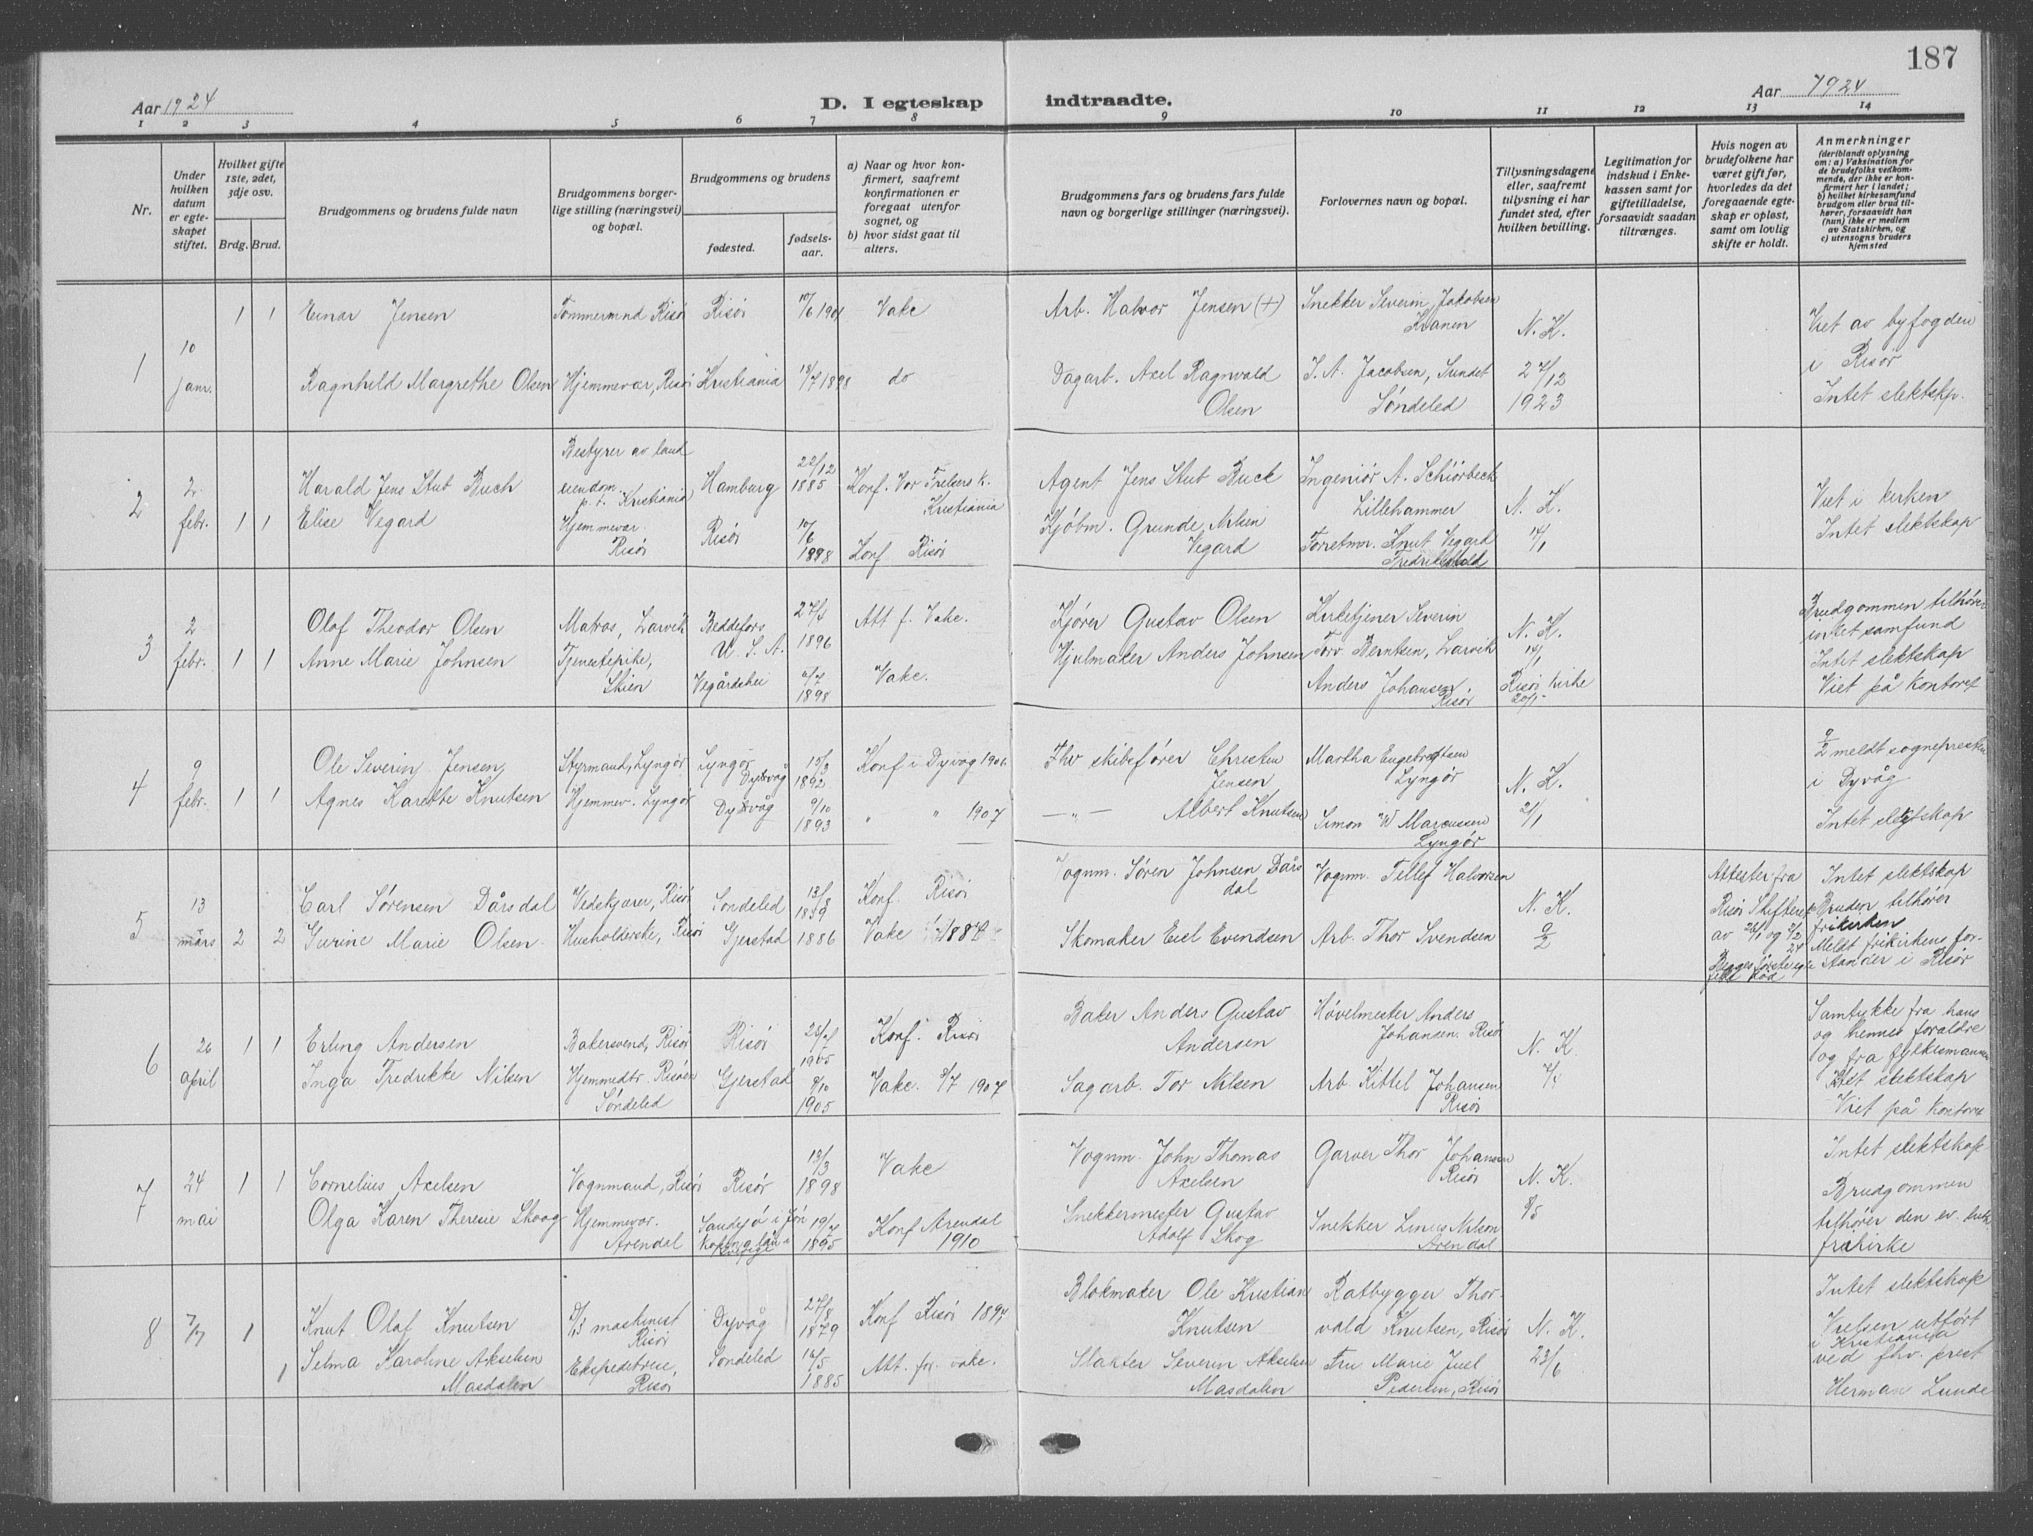 187
Aar 1924
D. I egteskap indtraadte.
Aar 1924
1 2 3 4 5 6 7 8 9 10 11 12 13 14
Nr.
Under hvilken datum er egteskapet stiftet.
Hvilket gifte 1ste, 2det, 3dje osv.
Brdg. Brud.
Brudgommens og brudens fulde navn
Brudgommens borgerlige stilling (næringsvei) og bopæl.
Brudgommens og brudens
fødested.
fødselsaar.
a) Naar og hvor konfirmert, saafremt konfirmationen er foregaat utenfor sognet, og
b) hvor sidst gaat til alters.
Brudgommens fars og brudens fars fulde navn og borgerlige stillinger (næringsvei).
Forlovernes navn og bopæl.
Tillysningsdagene eller, saafremt tillysning ei har fundet sted, efter hvilken bevilling.
Legitimation for indskud i Enkekassen samt for giftetilladelse, forsaavidt saadan tiltrænges.
Hvis nogen av brudefolkene har været gift før, hvorledes da det foregaaende egteskap er opløst, samt om lovlig skifte er holdt.
Anmerkninger
(deriblandt oplysning om: a) Vaksination for de brudefolks vedkommende, der ikke er konfirmert her i landet; b) hvilket kirkesamfund brudgom eller brud tilhører, forsaavidt han (hun) ikke er medlem av Statskirken, og c) utensogns bruders hjemsted
1
10 janr.
1 1
Einar Jensen
Tømmermnd Risør
Risør
10/6 1901
Vake
Arb. Halvor Jensen (+)
Snekker Severin Jakobsen
Kranen
N. K.
27/12
1923
Viet av byfogden
i Risør
Intet slektskp.
Ragnhild Margrethe Olsen
Hjemmevær, Risør
Kristiania
18/7 1898
do
Dagarb. Axel Ragnvald
Olsen
J. A. Jacobsen, Sundet
Søndeled
2
2 febr.
1 1
Harald Jens Stub Buch
Bestyrer av land
eiendom
p. t. Kristiania
Hamburg
22/12
1885
Konf. Vor Frelsers K.
Kristiania
Agent Jens Stub Buck
Ingeniør A. Schiørbeck
Lillehammer
N. K.
14/1
Viet i kirken
Intet slektskap
Elise Vegard
Hjemmevær.
Risør
Risør
10/6
1898
Konf Risør
Kjøbm. Grunde Nilsen
Vegard
Forretmr. Knut Vegard
Fredrikshald
3
2 febr.
1 1
Olaf Theodor Olsen
Matros, Larvik
Beddefors
U. S. A.
1896
Att f. Vake.
Kjører Gustav Olsen
Kirketjener Severin
Torv Berntsen, Larvik
N. K.
Risør Kirke
20/1
Brudgommen tilhører
intet samfund
Intet slektskap
Viet på kontoret
Anne Marie Johnsen
Tjenestepike,
Skien
Vegårdshei
1898
Vake.
Hjulmaker Anders Johnsen
Anders Johansen
Risør
4
9 febr.
1 1
Ole Severin Jensen
Styrmand, Lyngør
Lyngør
Dybvåg
1892
Konf i Dyvåg 1906
Fhv skibsfører Christen
Jensen
Martha Engebretsen
Lyngør
N. K.
21/1
9/2 meldt sognepresten
i Dyvåg
Intet slegtskap
Agnes Karethe Knutsen
Hjemmev. Lyngør
Dybvåg
9/10
1893
" " 1907
— " — Albert Knutsen
Simon W Marcussen
Lyngør
5
13 mars
2 2
Carl Sørensen Dårsdal
Vedskjærer, Risør
Søndeled
13/8
Konf Risør
Vognm. Søren Johnsen Dårs
dal
Vognm. Tellef Halvorsen
N. K.
9/2
Attester fra
Risør Skifteret
av 26/1 og 2/2
24
Begges første egte
felle død
Intet slektskap
Bruden tilhører
frikirken
Meldt frikirkens for-
stander i Risør
Gurine Marie Olsen
Husholderske, Risør
Gjerstad
1886
Vake
Skomaker Eiel Evendsen
Arb. Thor Svendsen
6
26 april
1 1
Erling Andersen
Bakersvend, Risør
Risør
1905
Konf. Risør
Baker Anders Gustav
Andersen
Høvelmester Anders
Johansen. Risør
N. K.
Samtykke fra hans
og hennes foreldre
og fra fylkesmannen
Intet slektskap
Viet på kontoret
Inga Fredrikke Nilsen
Hjemmedtr. Risøen
Søndeled
Gjerstad
9/10
1905
Vake. 1907
Sagarb. Tor Nilsen
Arb. Kittel Johansen
Risør
7
24 mai
1 1
Cornelius Axelsen
Vognmand, Risør
Risør
13/3
1898
Vake
Vognm. John Thomas
Axelsen
Garver Thor Johansen
Risør
N. K.
8/5
Intet slektskap
Brudgommen
tilhører den ev. luth
frikirke
Olga Karen Theresie Skoog
Hjemmevær.
Arendal
19/7
1895
Konf Arendal
1910
Snekkermester Gustav
Adolf Skog
Snekker Linus Nilson
Arendal
8
7/7
1
Knut Olaf Knutsen
D/S maskinist
Risør
Dyvåg
27/8
1879
Konf Risør 1894
Blokmaker Ole Kristian
Knutsen
Båtbygger Thor-
vald Knutsen, Risør
N. K.
23/6
Intet slektskap
Vielsen utført
i Kristiania
ved fhv. prest
Herman Lunde
1
Selma Karoline Akselsen
Masdalen
Ekspeditrise,
Risør
Søndeled
16/5
1885
Att. for vake.
Slakter Severin Akselsen
Masdalen
Fru Marie Juel
Pedersen, Risør